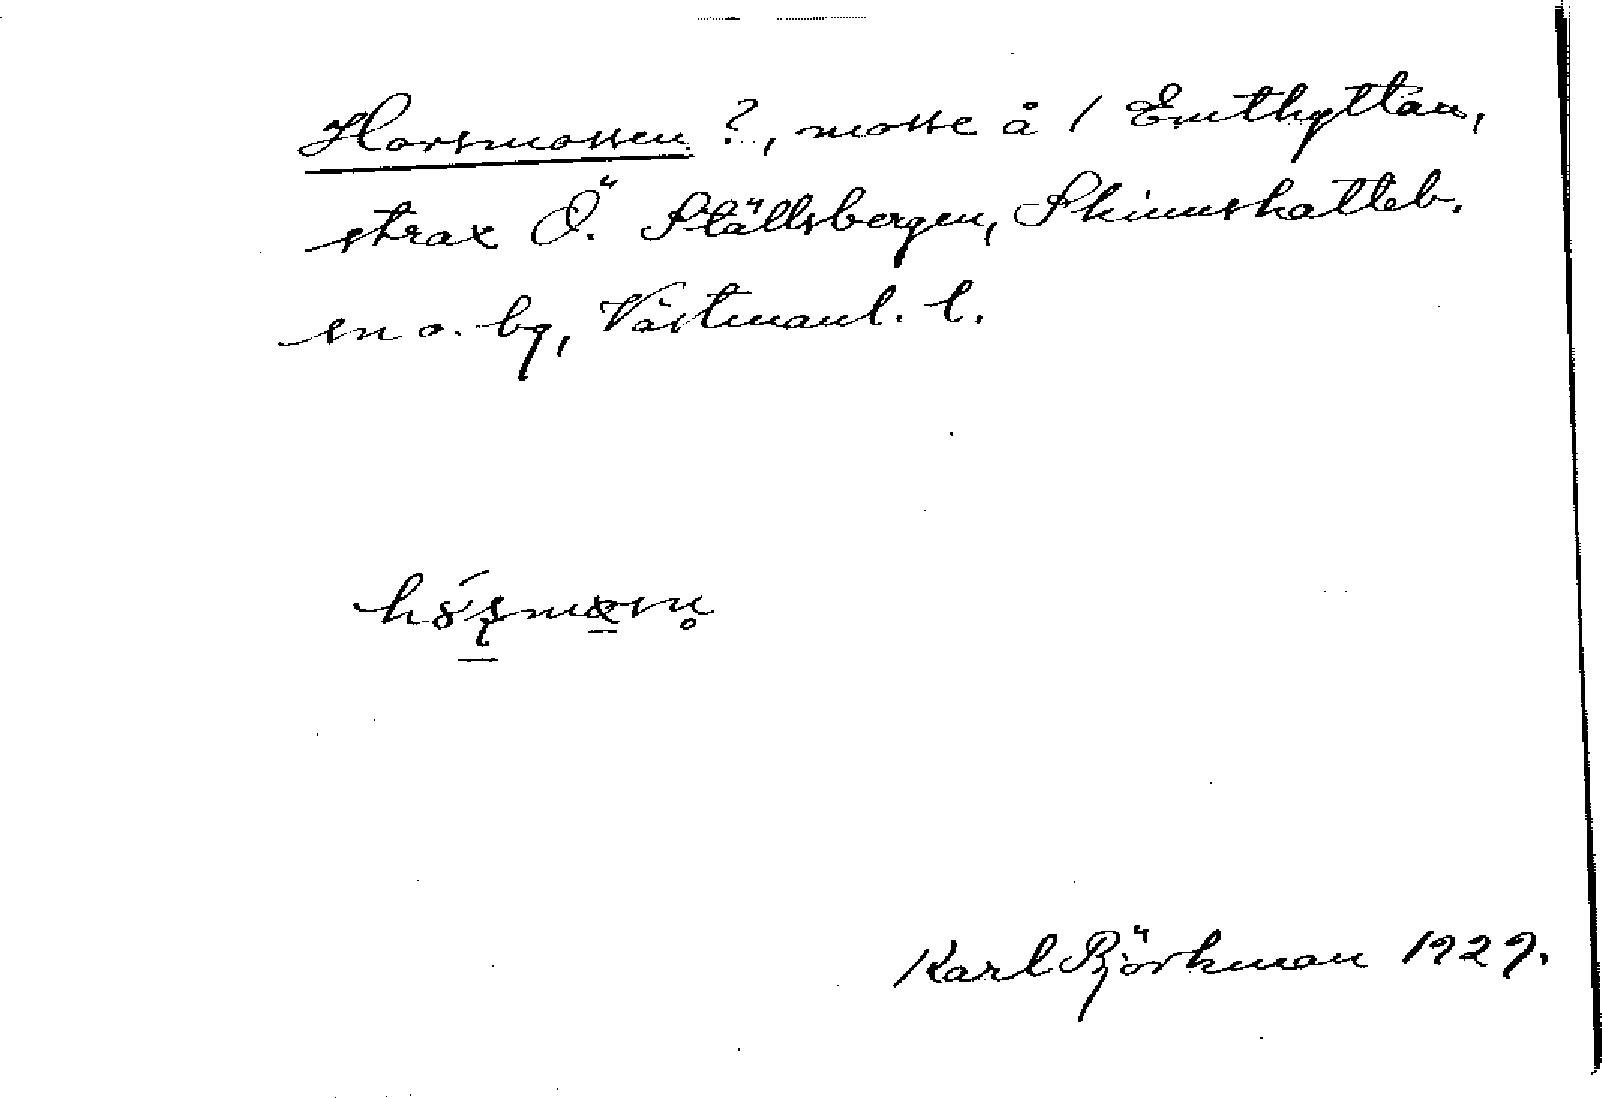 Horsmossen ?, mosse å / Emthyttan,
strax Ö. Ställsbergen, Skinnskatteb.
sn o. bg, Västmanl. l.
Karl Björkman 1929.